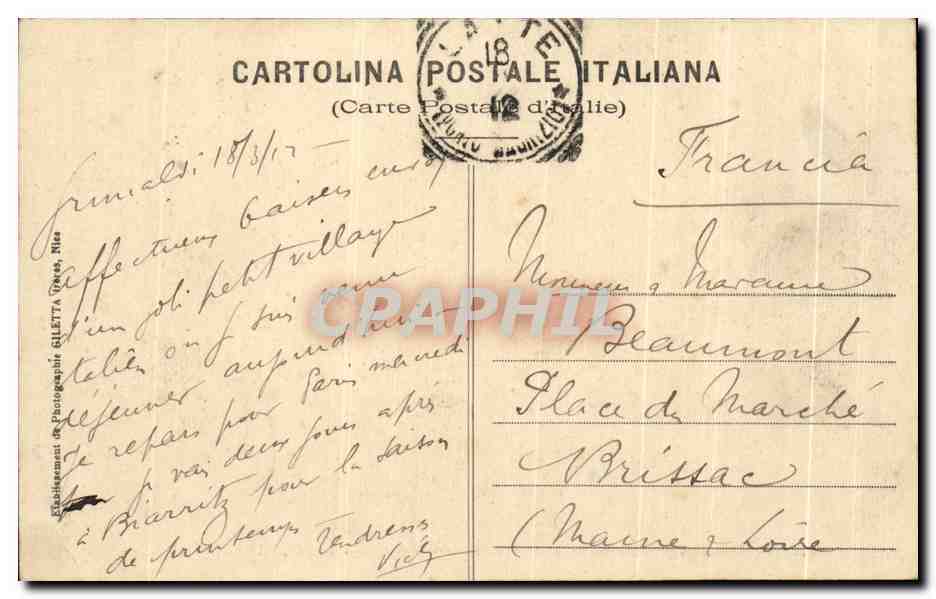 CARTOLINA POSTALE ITALIANA
(Carte Postale d'Italie)
LATTE
18
12
PORTO MAURIZIO
Grimaldi 18/3/12 -
affectueux baisers
d'un joli petit village
italien où je suis venu
déjeuner aujourd'hui -
Je repars pour Paris mercredi
je vais deux jours après
à Biarritz pour la saison
de printemps Tendresses
Francia
Monsieur & Madame
Beaumont
Place du Marché
Brissac
(Maine & Loire
Etablissement de Photographie GILETTA frères, Nice
CPAPHIL